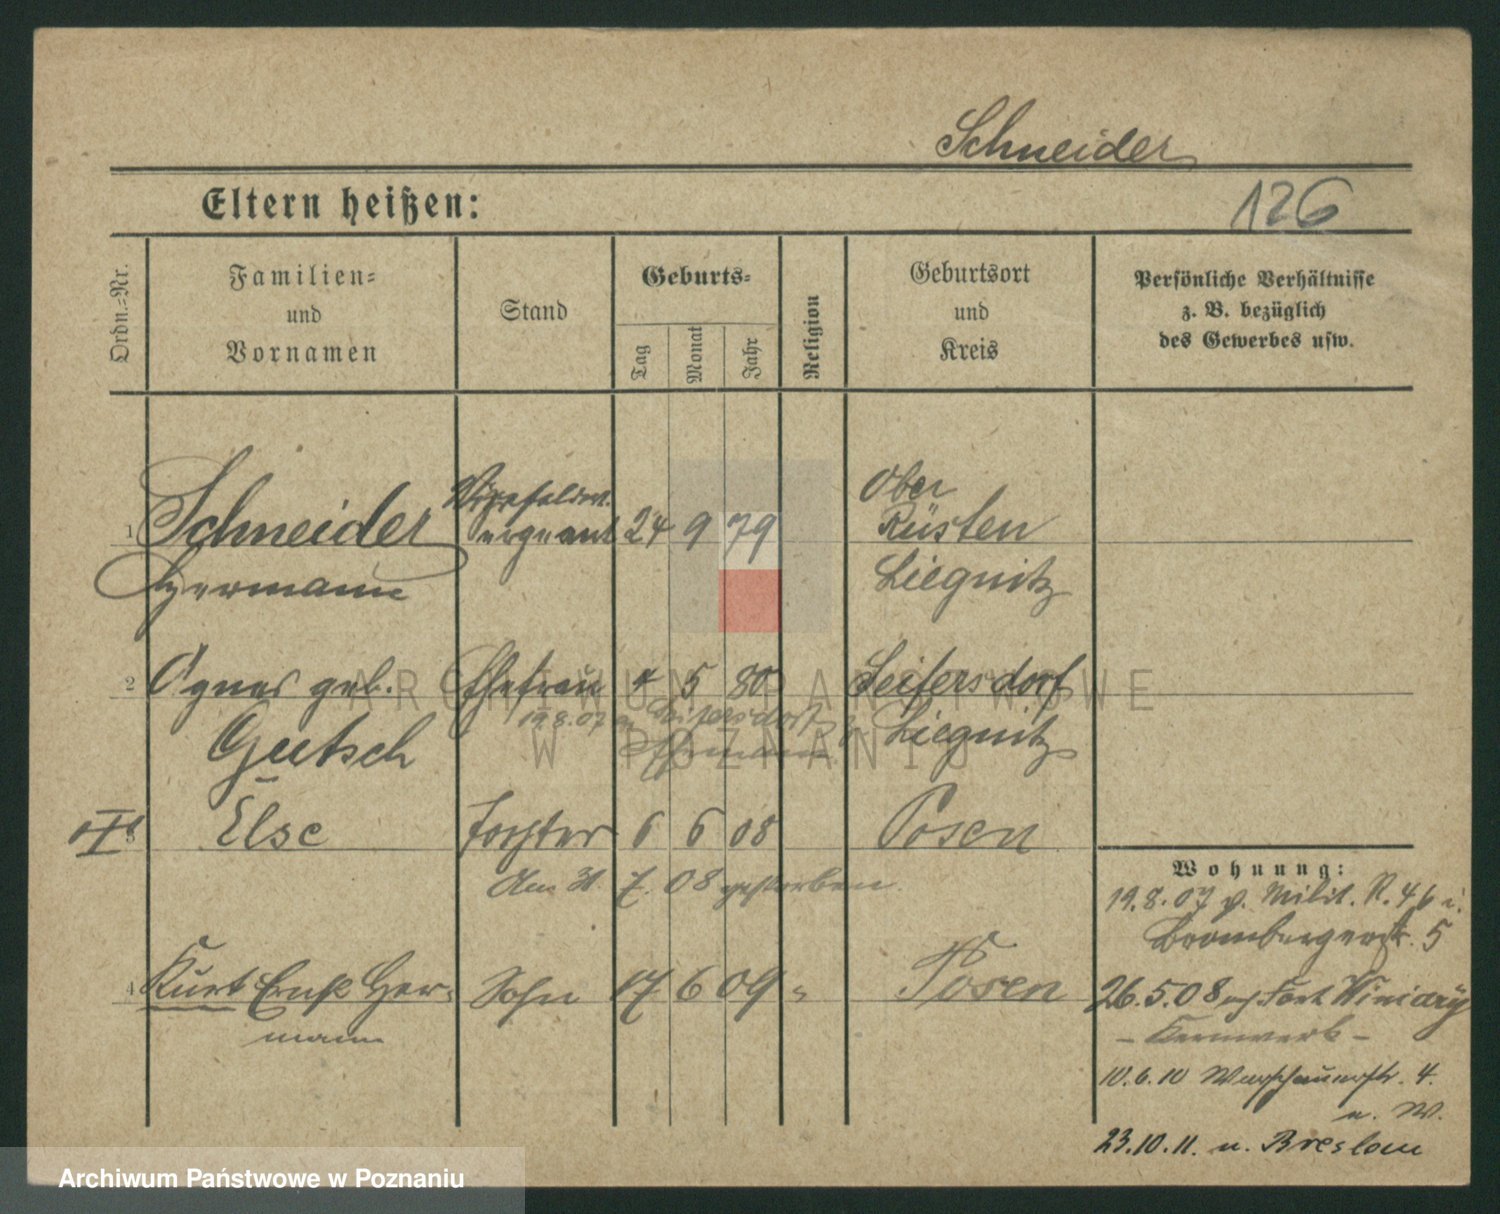 Schneider
Eltern heißen:
126
Ordn.=Nr.
Familien=
und
Vornamen
Stand
Geburts=
Tag
Monat
Jahr
Religion
Geburtsort
und
Kreis
Persönliche Verhältnisse
z. B. bezüglich
des Gewerbes usw.
1 Schneider
Hermann
Vizefeldw.
Sergeant
24 9 79
Ober
Rüstern
Liegnitz
2 Agnes geb.
Gutsch
Ehefrau
4 5 80
Seifersdorf
Liegnitz
19.8.07 Seifersdorf
3 Else
Tochter
6 6 08
Posen
Am 31. 7. 08 gestorben.
4 Kurt Erich Her-
mann
Sohn
17 6 09
Posen
Wohnung:
19.8.07 v. Milit. R. 46 i.
Brombergerstr. 5
26.5.08 Fort Winiary
- Kernwerk -
10.6.10 Warschauerstr. 4.
n. W.
23.10.11. n. Breslau
ARCHIWUM PAŃSTWOWE
W POZNANIU
Archiwum Państwowe w Poznaniu